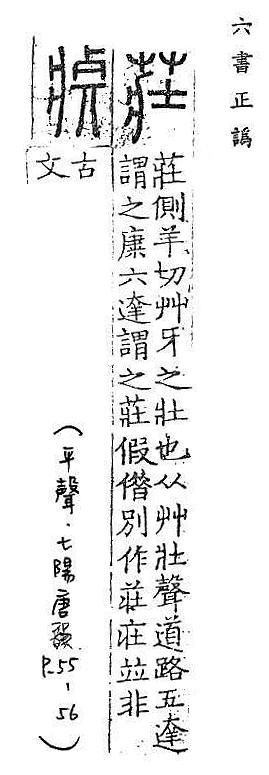 六書正譌
莊
莊側羊切艸牙之壯也从艸壯聲道路五逹
謂之康六逹謂之莊假僭別作荘庄竝非
古文
(平聲·七陽唐韻
P.55-56)